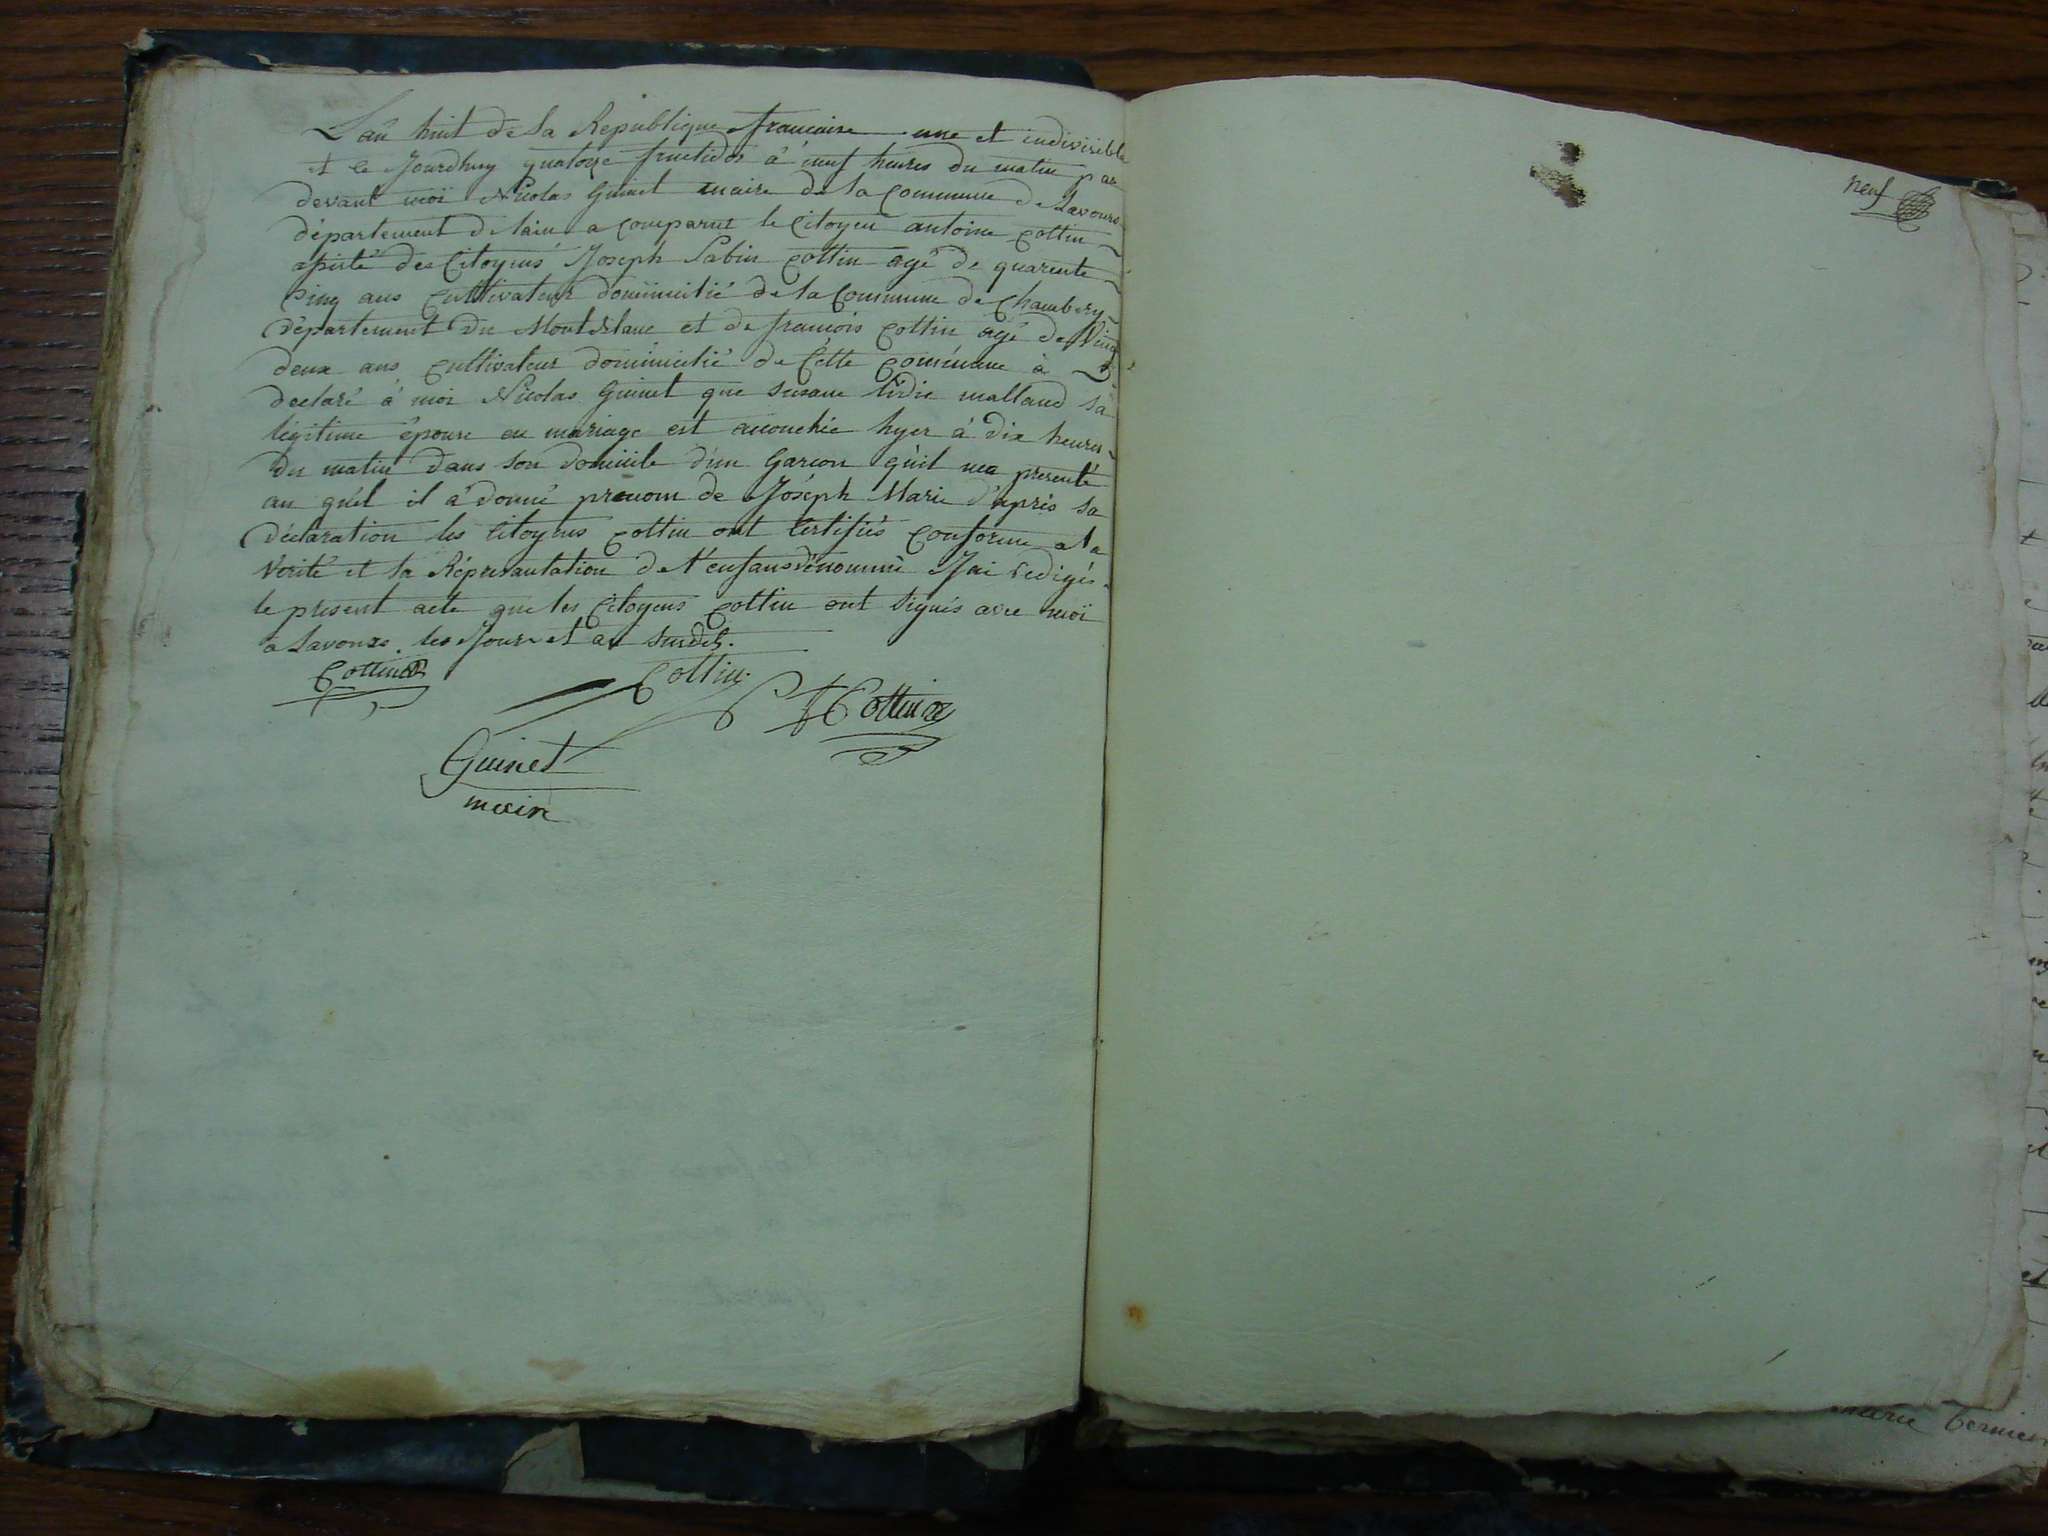 L'an huit de la Republique francaise une et indivisible
et le Jourdhuy quatorze fructidor à neuf heures du matin par
devant moi Nicolas Guinet maire de la Commune de Lavours
département de lain a comparut le Citoyen antoine Cottin
assisté des Citoyens Joseph Sabin Cottin agé de quarente
Cinq ans Cultivateur domimicilié de la Commune de Chambery
département du Montblanc et de francois Cottin agé de Vingt
deux ans Cultivateur domimicilié de Cette Commune à
declaré à moi Nicolas Guinet que susane lidie malland sa
légitime épouse en mariage est accouchée hyer à dix heures
du matin dans son domicile d'un Garcon qu'il ma presenté
au quel il à donné prenom de Joséph Marie d'après sa
déclaration les Citoyens Cottin ont Certifiés Conforme a la
Verité et la Réprésantation de l'enfans dénommé J'ai redigés
le present acte que les Citoyens Cottin ont signés avec moi
a Lavours les Jour et an susdit.
Cottin
Cottin
Cottin
Guinet
maire
neuf
marie bernier